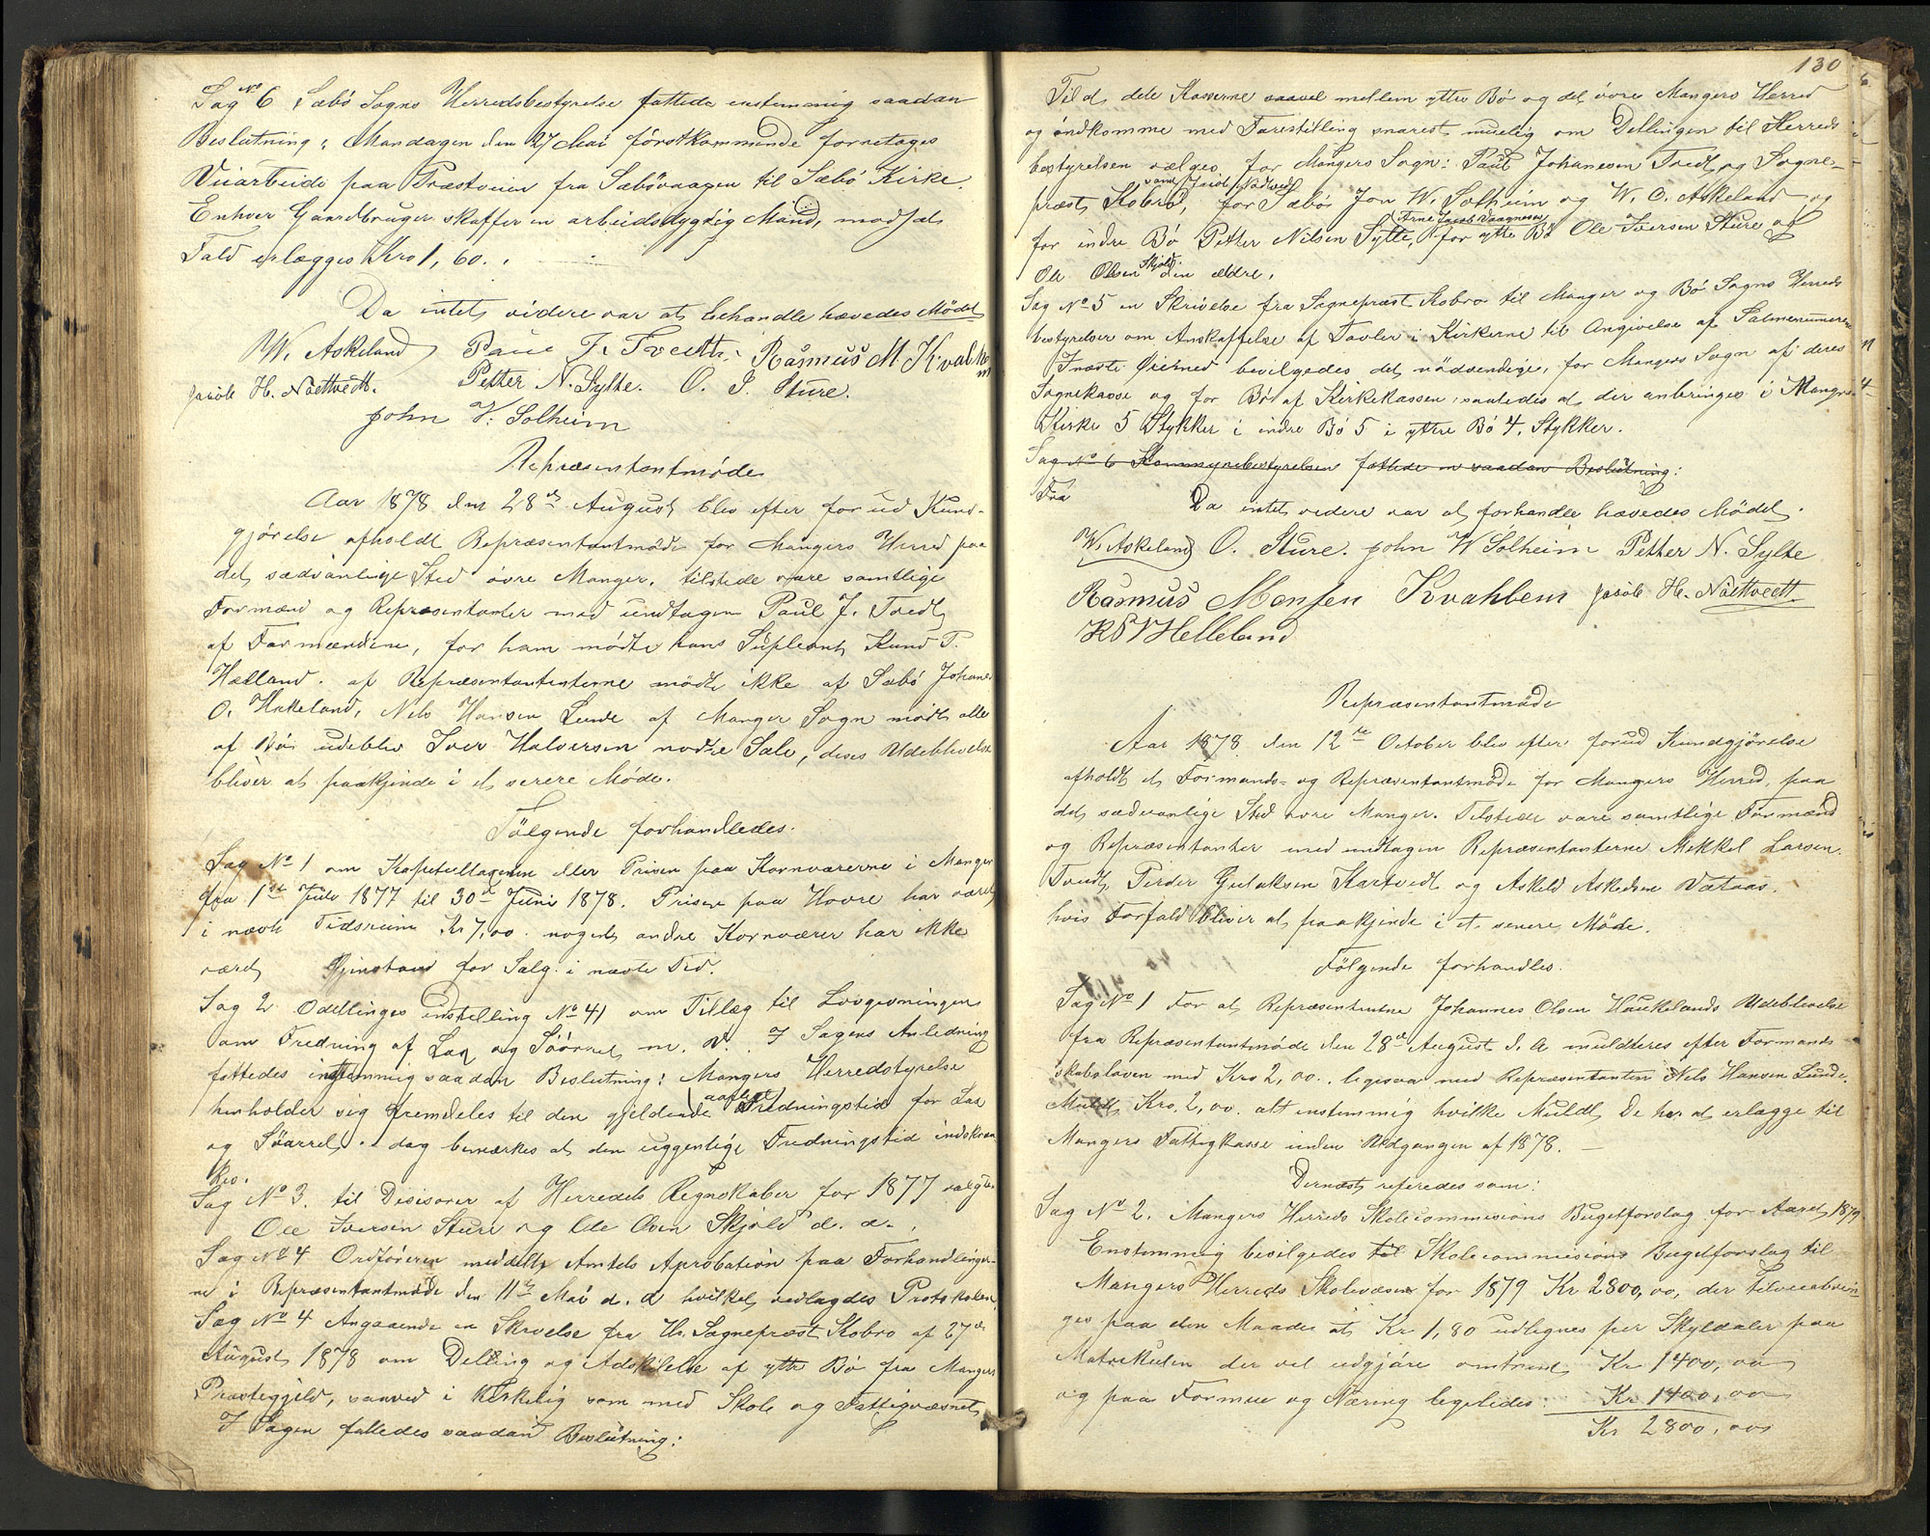 Sag No 6 Sæbö Sogns Herredsbestyrelse fattede enstemmig saadan
Beslutning: Mandagen den 27 Mai förstkommende foretages
Veiarbeide paa Præsteveien fra Sæbövaagen til Sæbö Kirke.
Enhver Gaardbruger skaffer en arbeidsdygtig Mand, modsat
Fald erlægges Kro 1,60.
Da intet videre var at behandle hævedes Mödet
W. Askeland Paul J. Tvedt. Rasmus M. Kvalheim
Jacob H. Nöttvedt. Petter N. Sylte. O. I. Sture.
John W. Solheim
Repræsentantmöde
Aar 1878 den 28de August blev efter forud Kund-
gjörelse afholdt Repræsentantmöde for Mangers Herred paa
det sædvanlige Sted övre Manger. tilstede vare samtlige
Formænd og Repræsentanter med undtagen Paul J. Tvedt
af Formændene, for ham mödte hans Supleant Knud P.
Hælland. af Repræsentanterne mödte ikke af Sæbö Johanes
O. Hakeland, Nels Hansen Lunde af Manger Sogn mödte alle
af Bö udeblev Iver Halversen nodre Sæle, deres Udeblivelse
bliver at paakjende i et senere Möde.
Fölgende forhandledes.
Sag No 1 om Kapetelstagsten eller Prisen paa Kornvarerne i Manger
fra 1ste Juli 1877 til 30te Juni 1878. Prisen paa Havre har været
i nævte Tidsrum Kr 7,00. noget andre Kornvarer har ikke
været Gjenstand for Salg i nævte Tid.
Sag 2 Odellinges indstelling No 41 om Tillæg til Lovgivningen
om Fredning af Lax og Söörret m. v. I Sagens Anledning
fattedes enstemmig saadan Beslutning: Mangers Herredstyrelse
henholder sig fremdeles til den gjeldende Fredningstid for Lax
og Söarret. dog bemærkes at den uggentlige Fredningstid indskræn-
kes.
Sag No 3. til Desisorer af Herredets Regnskaber for 1877 valgtes
Ole Iversen Sture og Ole Osen Skjold d. æ.
Sag No 4 Ordföreren meddelte Amtets Aprobation paa Forhandlinger-
ne i Repræsentantmöde den 11te Mai d. A hvilket vedlagdes Protokolen.
Sag No 4 Angaaende en Skrivelse fra Hr. Sognepræst Kobro af 27de
August 1878 om Delling og Adskilelse af yttre Bö fra Mangers
Præstegjeld, saavel i kirkelig som med Skole og Fattigvæsnet
I Sagen fattedes saadan Beslutning:
130
Til at dele Kasserne saavel mellem yttre Bö og det övre Mangers Herred
og indkomme med Forestilling snarest muelig om Dellingen til Herreds
bestyrelsen vælges for Mangers Sogn: Paul Johanesen Tvedt og Sogne-
præst Kobro, samt Jacob Nödtvedt for Sæbö Jon W. Solheim og W. O. Askeland og
for indre Bö Petter Nilsen Sylte, Arne Jacob Vaagnesen for yttre Bö Ole Iversen Sture og
Ole Olsen Skjold den ældre.
Sag No 5 en Skrivelse fra Sognepræst Kobro til Manger og Bö Sogns Herreds
bestyrelser om Anskaffelse af Tavler i Kirkerne til Angivelse af Salmenumerene
I næste Öiemed bevilgedes det nödvendige, for Mangers Sogn af deres
Sognekasse og for Bö af Kirkekassen, saaledes at der anbringes i Mangers
Kirke 5 Stykker i indre Bö 5 i yttre Bö 4. Stykker.
Sag No 6 Kommunebestyrelsen fattede en saadan Beslutning:
Fra
Da intet videre var at forhandle hævedes Mödet.
W. Askeland O. Sture. John W Solheim Petter N. Sylte
Rasmus Monsen Kvalheim Jacob H. Nöttvedt.
K P Helleland
Repræsentantmöde
Aar 1878 den 12te October blev efter forud Kundgjörelse
afholdt et Formands- og Repræsentantmöde for Mangers Herred, paa
det sædvanlige Sted övre Manger. Tilstede vare samtlige Formænd
og Repræsentanter med undtagen Repræsentanterne Mekkel Larsen
Tvedt, Peder Gulaksen Kartvedt og Askeld Askedsen Vætaas,
hvis Forfald bliver at paakjende i et senere Möde.
Fölgende forhandles.
Sag No 1 For at Repræsentantne Johannes Olsen Haukelands Udeblivelse
fra Repræsentantmöde den 28de August d. A muldteres efter Formand-
skabsloven med Kro 2,00. ligesaa med Repræsentanten Nels Hansen Lunde.
Muldt Kro. 2,00. alt enstemmig hvilke Muldt De har at erlægge til
Mangers Fattigkasse inden Udgangen af 1878.
Dernæst referedes som:
Sag No 2. Mangers Herreds Skolecommisions Bugetforslag for Aaret 1879
Enstemmig bevilgedes til Skolecommisions Bugetforslag til
Mangers Herreds Skolevæsen for 1879 Kr 2800,00, der tilveiebrin-
ges paa den Maade at Kr 1,80 udlignes per Skyldaler paa
Matrikulen der vel udgjöre omtrent Kr 1400,00
og paa Formue og Næring legeledes: Kr 1400,00
Kr 2800,00